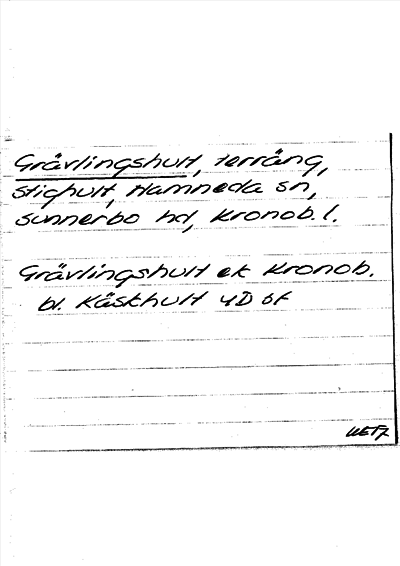 Grävlingshult, terräng,
Stighult, Hamneda sn,
Sunnerbo hd, Kronob. l.
Grävlingshult ek Kronob.
bl. Käskhult 4D 6f